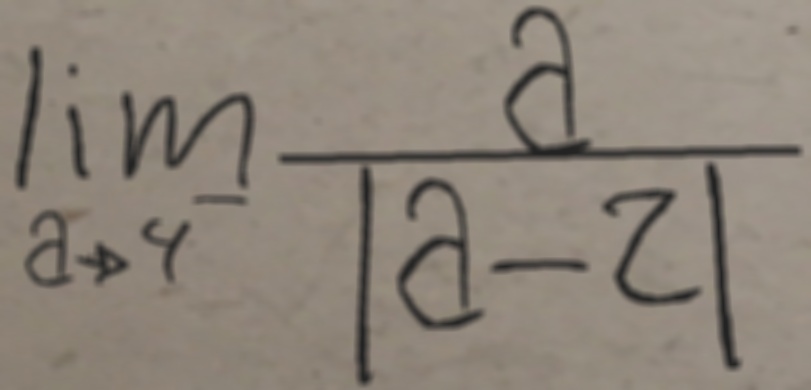 \lim_{a \to 4^-} \frac{a}{|a-2|}